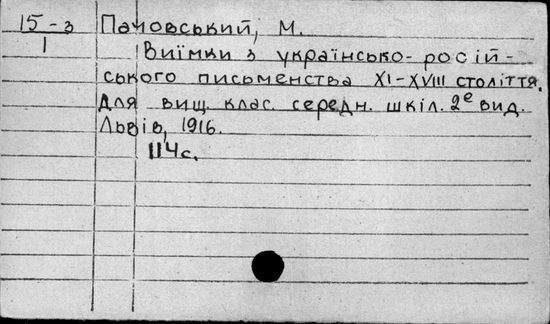 15-з Пачовський, М.
1
Виїмки з українсько-росій-
ського письменства XI-XVIII століття.
Для вищ. клас. середн. шкіл. 2е вид.
Львів, 1916.
114с.